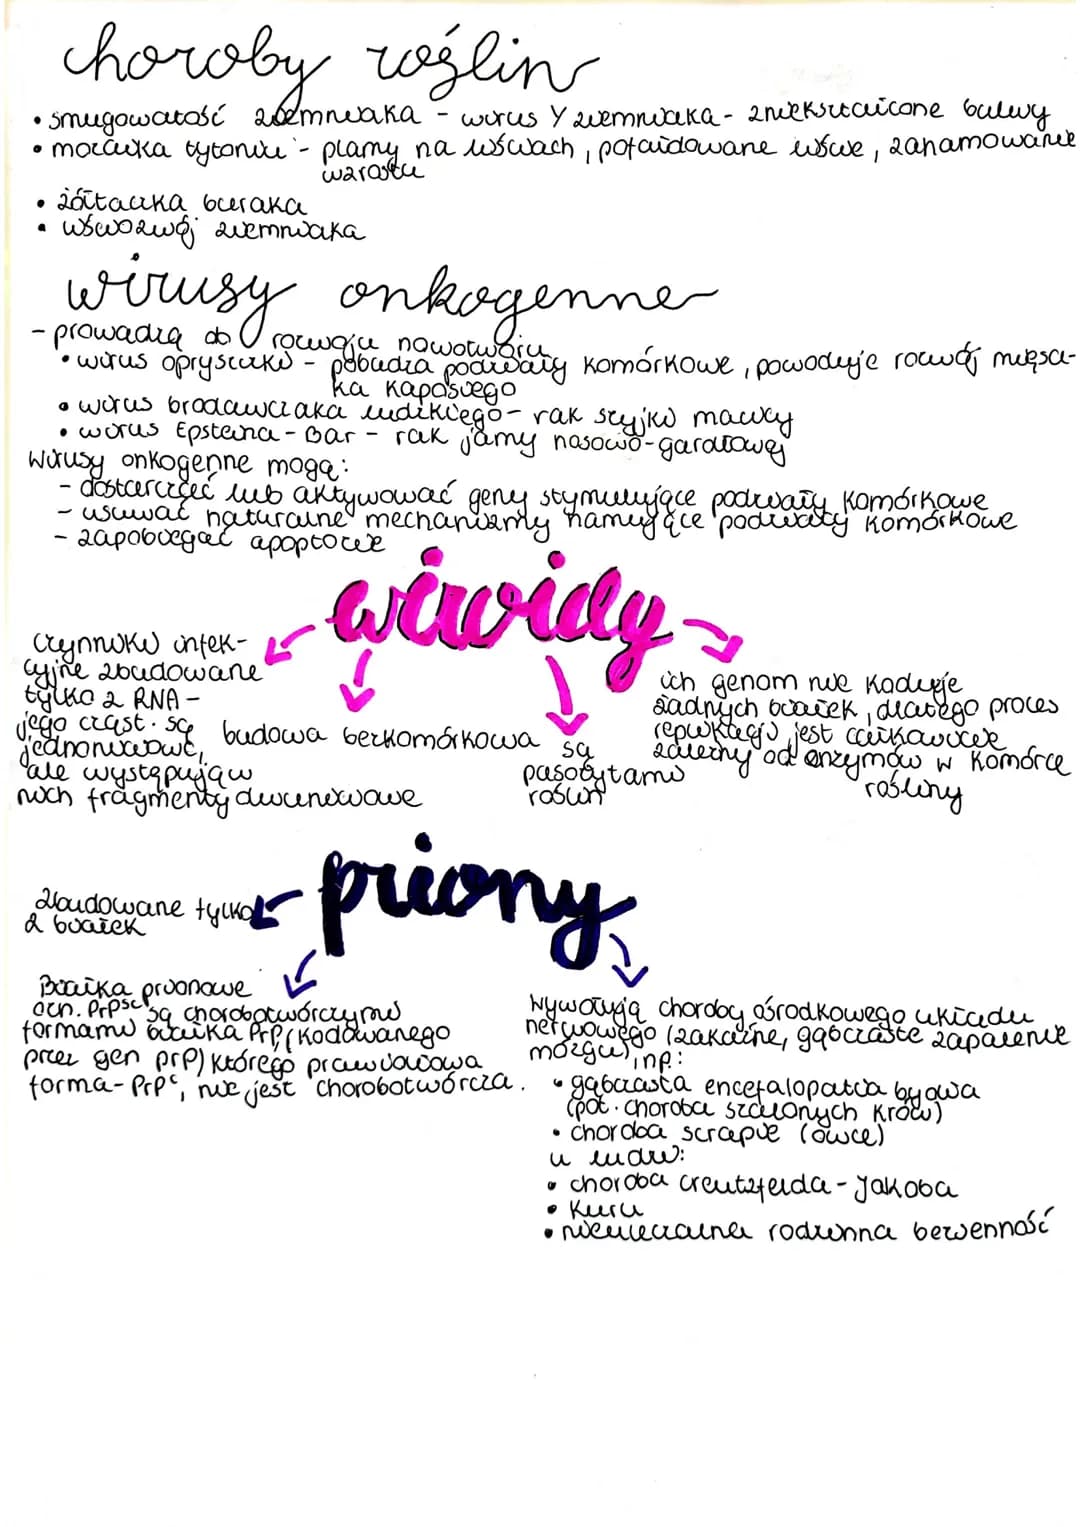 choroby roślin
• smugowatość ziemniaka - wirus Y ziemniaka - zniekształcone bulwy
• mozaika tytoniu - plamy na liściach, pofałdowane liście, zahamowanie
wzrostu
• żółtaczka buraka
• liściozwój ziemniaka
wirusy onkogenne
- prowadzą do rozwoju nowotworu
• wirus opryszczki - pobudza podziały komórkowe, powoduje rozwój mięsa-
ka Kaposiego
• wirus brodawczaka ludzkiego - rak szyjki macicy
• wirus Epsteina - Bar - rak jamy nosowo-gardłowej
Wirusy onkogenne mogą:
- dostarczać lub aktywować geny stymulujące podziały komórkowe
- usuwać naturalne mechanizmy hamujące podziały komórkowe
- zapobiegać apoptozie
wiroidy
czynniki infek-
cyjne zbudowane
tylko z RNA -
jego cząst. są
jednoniciowe,
ale występują w
nich fragmenty dwuniciowe
budowa bezkomórkowa
są
pasożytami
roślin
ich genom nie koduje
żadnych białek, dlatego proces
replikacji jest całkowicie
zależny od enzymów w komórce
rośliny
priony
zbudowane tylko
z białek
Białka prionowe
ozn. PrPsc są chorobotwórczymi
formami białka PrP (kodowanego
przez gen prp) którego prawidłowa
forma - PrPc, nie jest chorobotwórcza.
Wywołują choroby ośrodkowego układu
nerwowego (zakaźne, gąbczaste zapalenie
mózgu), np:
• gąbczasta encefalopatia bydła
(pot. choroba szalonych krów)
• choroba scrapie (owce)
u ludzi:
• choroba Creutzfelda - Jakoba
• Kuru
• nieuleczalna rodzinna bezsenność